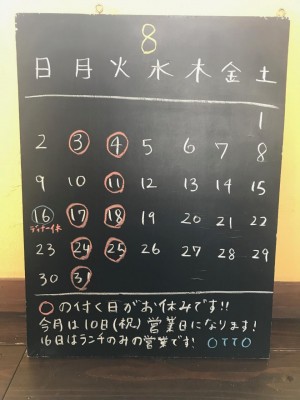 8
日 月 火 水 木 金 土
1
2 3 4 5 6 7 8
9 10 11 12 13 14 15
16 17 18 19 20 21 22
ディナー休
23 24 25 26 27 28 29
30 31
○の付く日がお休みです!!
今月は10日(祝)営業日になります!
16日はランチのみの営業です! OTTO